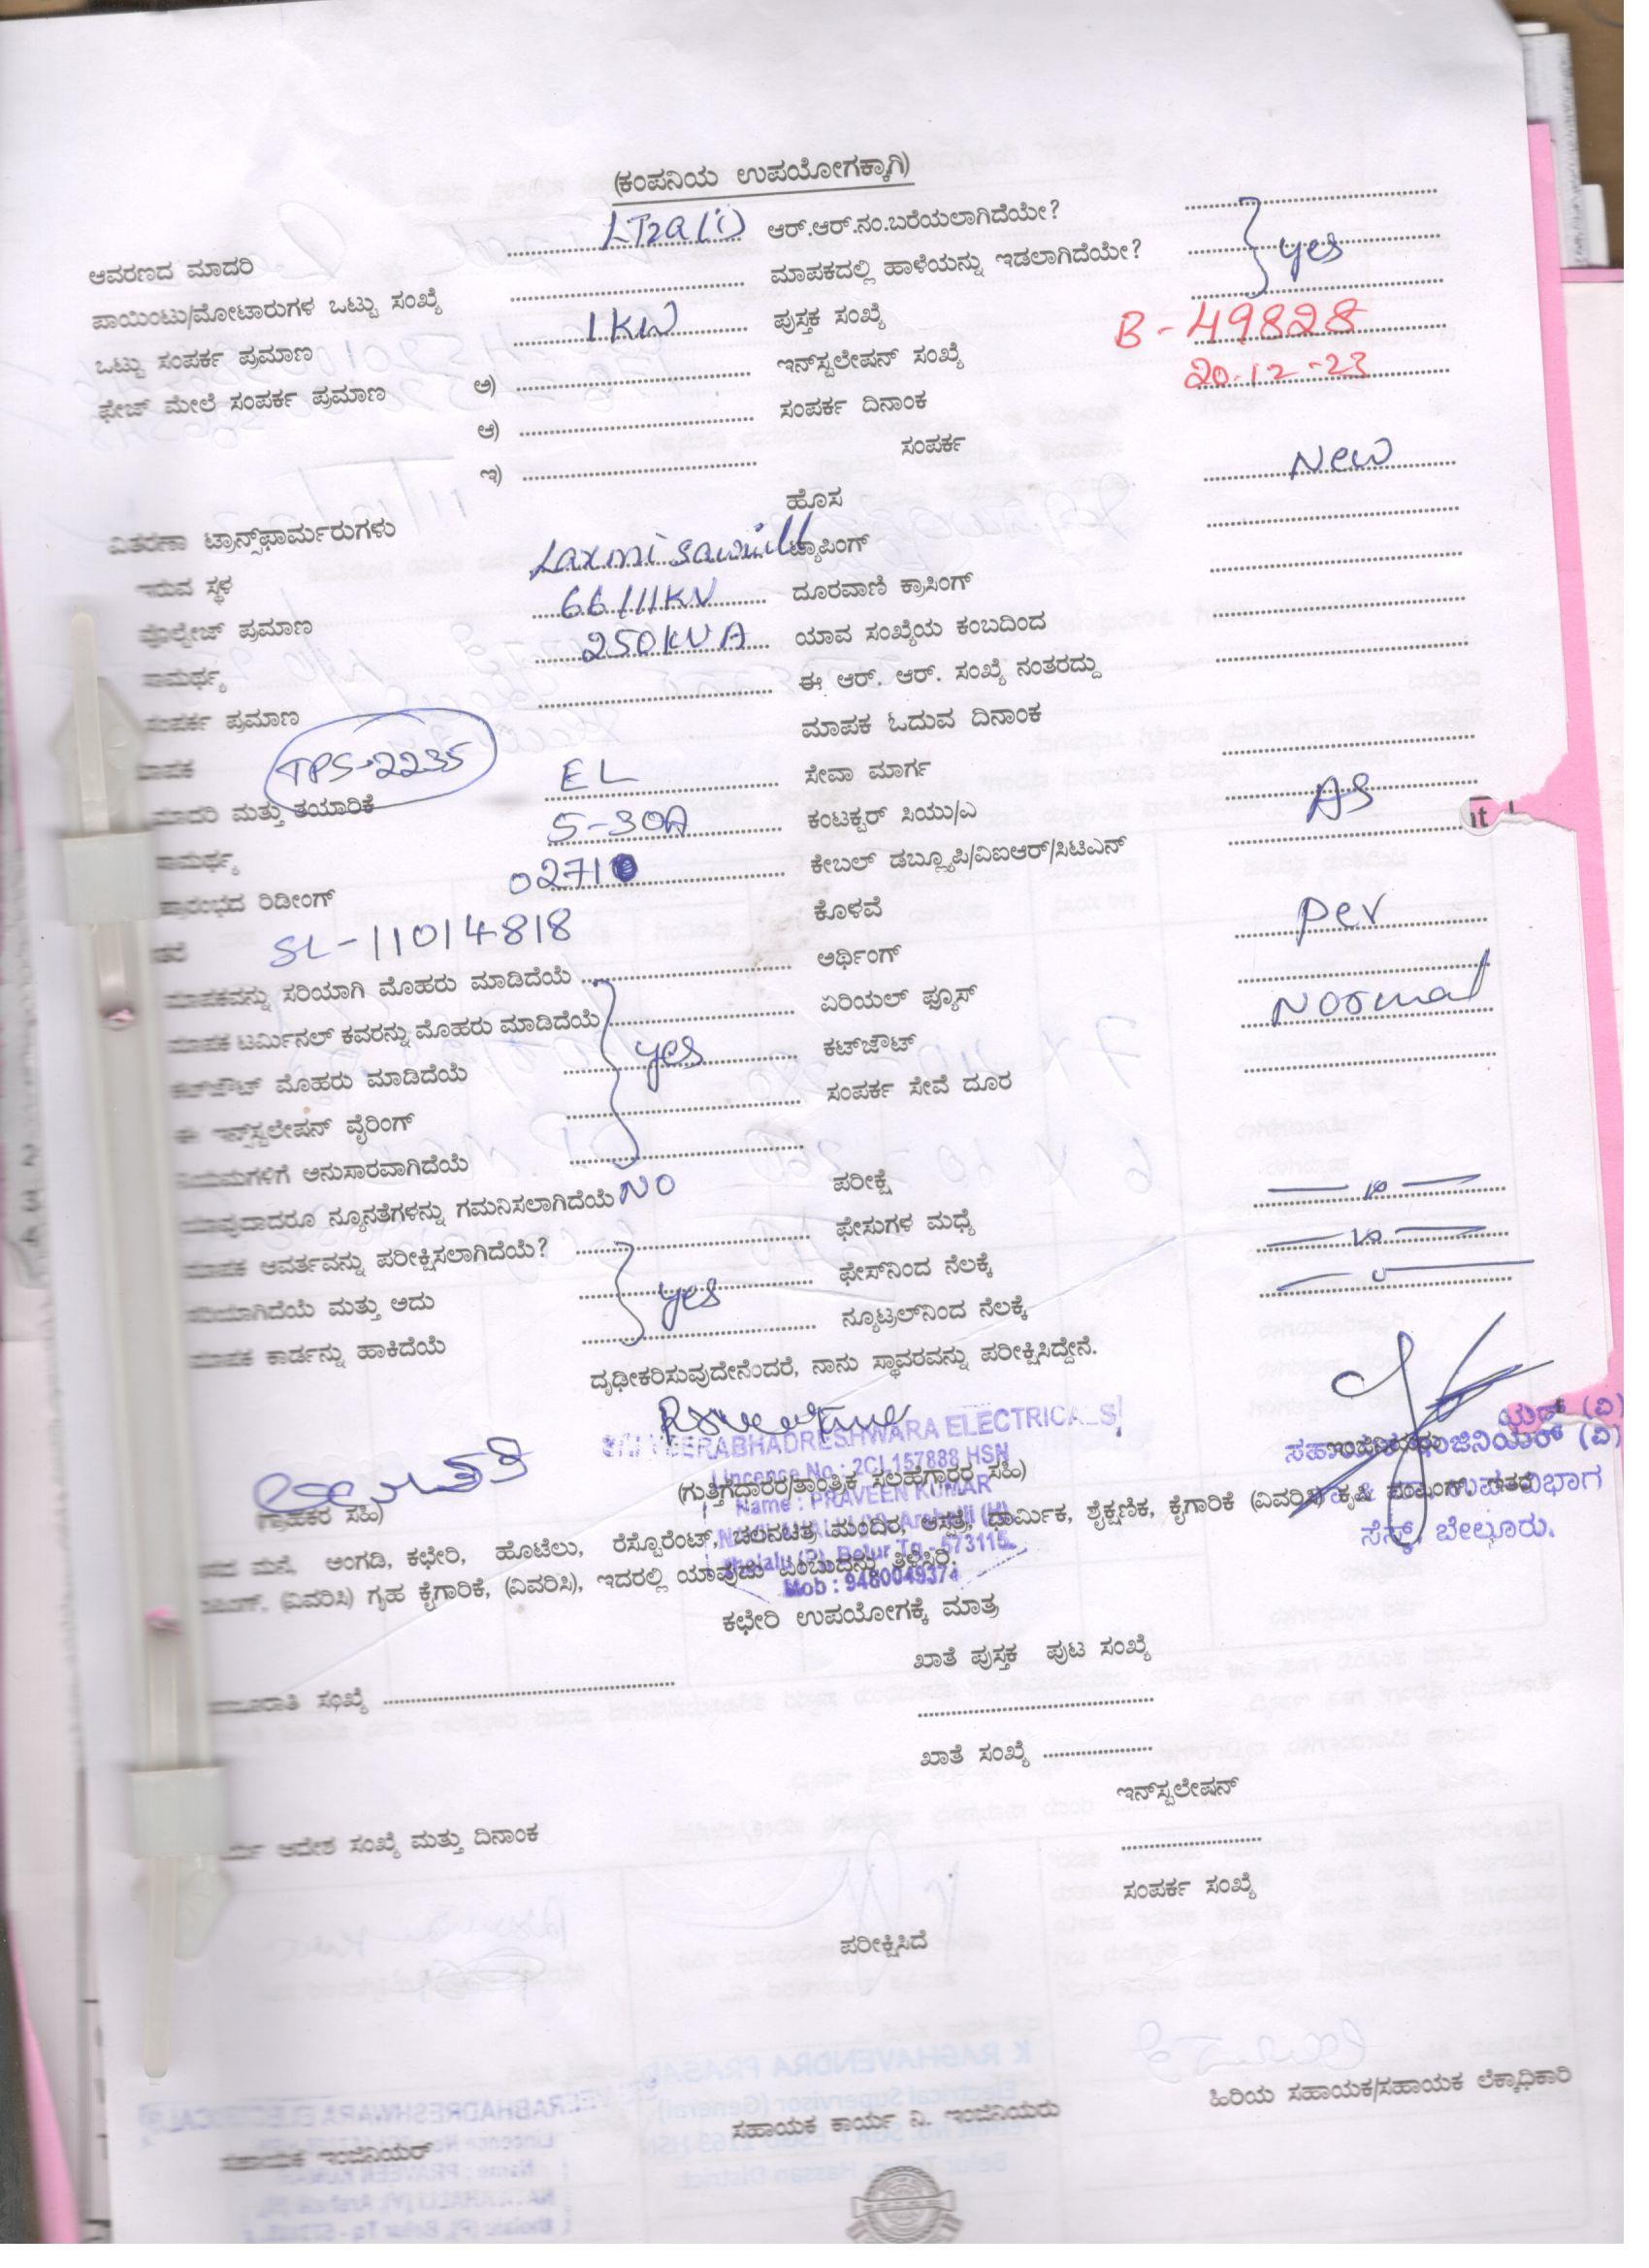 (ಕಂಪನಿಯ ಉಪಯೋಗಕ್ಕಾಗಿ)
ಆವರಣದ ಮಾದರಿ LT2a(i) ಆರ್.ಆರ್.ನಂ.ಬರೆಯಲಾಗಿದೆಯೇ?
ಪಾಯಿಂಟು/ಮೋಟಾರುಗಳ ಒಟ್ಟು ಸಂಖ್ಯೆ ಮಾಪಕದಲ್ಲಿ ಹಾಳೆಯನ್ನು ಇಡಲಾಗಿದೆಯೇ? yes
ಒಟ್ಟು ಸಂಪರ್ಕ ಪ್ರಮಾಣ 1KW ಪುಸ್ತಕ ಸಂಖ್ಯೆ
ಫೇಜ್ ಮೇಲೆ ಸಂಪರ್ಕ ಪ್ರಮಾಣ ಅ) ಇನ್‌ಸ್ಟಲೇಷನ್ ಸಂಖ್ಯೆ B-49828
ಆ) ಸಂಪರ್ಕ ದಿನಾಂಕ 20-12-23
ಇ) ಸಂಪರ್ಕ
ಹೊಸ New
ವಿತರಣಾ ಟ್ರಾನ್ಸ್‌ಫಾರ್ಮರುಗಳು
ಇರುವ ಸ್ಥಳ Laxmi sawmill ಟ್ಯಾಪಿಂಗ್
ವೊಲ್ಟೇಜ್ ಪ್ರಮಾಣ 66/11KV ದೂರವಾಣಿ ಕ್ರಾಸಿಂಗ್
ಸಾಮರ್ಥ್ಯ 250KVA ಯಾವ ಸಂಖ್ಯೆಯ ಕಂಬದಿಂದ
ಸಂಪರ್ಕ ಪ್ರಮಾಣ ಈ ಆರ್. ಆರ್. ಸಂಖ್ಯೆ ನಂತರದ್ದು
ಮಾಪಕ ಓದುವ ದಿನಾಂಕ
TPS-2235
ಮಾದರಿ ಮತ್ತು ತಯಾರಿಕೆ EL ಸೇವಾ ಮಾರ್ಗ
ಸಾಮರ್ಥ್ಯ 5-30A ಕಂಟಕ್ಟರ್ ಸಿಯು/ಎ AS
ಪ್ರಾರಂಭದ ರಿಡೀಂಗ್ 02710 ಕೇಬಲ್ ಡಬ್ಲ್ಯೂಪಿ/ವಿಐಆರ್/ಸಿಟಿಎನ್
SL-11014818 ಕೊಳವೆ per
ಮಾಪಕವನ್ನು ಸರಿಯಾಗಿ ಮೊಹರು ಮಾಡಿದೆಯೆ ಅರ್ಥಿಂಗ್
ಮಾಪಕ ಟರ್ಮಿನಲ್ ಕವರನ್ನು ಮೊಹರು ಮಾಡಿದೆಯೆ ಏರಿಯಲ್ ಫ್ಯೂಸ್ Normal
ಕಟ್‌ಜೌಟ್ ಮೊಹರು ಮಾಡಿದೆಯೆ yes ಕಟ್‌ಜೌಟ್
ಈ ಇನ್ಸ್‌ಟಲೇಷನ್ ವೈರಿಂಗ್ ಸಂಪರ್ಕ ಸೇವೆ ದೂರ
ನಿಯಮಗಳಿಗೆ ಅನುಸಾರವಾಗಿದೆಯೆ
ಯಾವುದಾದರೂ ನ್ಯೂನತೆಗಳನ್ನು ಗಮನಿಸಲಾಗಿದೆಯೆ NO ಪರೀಕ್ಷೆ
ಮಾಪಕ ಆವರ್ತವನ್ನು ಪರೀಕ್ಷಿಸಲಾಗಿದೆಯೆ? ಫೇಸುಗಳ ಮಧ್ಯೆ
ಸರಿಯಾಗಿದೆಯೆ ಮತ್ತು ಅದು yes ಫೇಸ್‌ನಿಂದ ನೆಲಕ್ಕೆ
ಮಾಪಕ ಕಾರ್ಡನ್ನು ಹಾಕಿದೆಯೆ ನ್ಯೂಟ್ರಲ್‌ನಿಂದ ನೆಲಕ್ಕೆ
ದೃಢೀಕರಿಸುವುದೇನೆಂದರೆ, ನಾನು ಸ್ಥಾವರವನ್ನು ಪರೀಕ್ಷಿಸಿದ್ದೇನೆ.
VEERABHADRESHWARA ELECTRICALS
Lincence No : 2CL157888 HSN
Name : PRAVEEN KUMAR
Belur Tq - 573115
Mob : 9480049374
(ಗ್ರಾಹಕರ ಸಹಿ) (ಗುತ್ತಿಗೆದಾರರ/ತಾಂತ್ರಿಕ ಸಲಹೆಗಾರರ ಸಹಿ)
ಉಪವಿಭಾಗ
ಸೆಸ್ಕ್, ಬೇಲೂರು.
ಮನೆ, ಅಂಗಡಿ, ಕಛೇರಿ, ಹೊಟೆಲು, ರೆಸ್ಟೊರೆಂಟ್, ಚಲನಚಿತ್ರ ಮಂದಿರ, ಆಸ್ಪತ್ರೆ, ಧಾರ್ಮಿಕ, ಶೈಕ್ಷಣಿಕ, ಕೈಗಾರಿಕೆ (ವಿವರಿಸಿ) ಕೃಷಿ
(ವಿವರಿಸಿ) ಗೃಹ ಕೈಗಾರಿಕೆ, (ವಿವರಿಸಿ), ಇದರಲ್ಲಿ ಯಾವುದು ಎಂಬುದನ್ನು ತಿಳಿಸಿರಿ.
ಕಛೇರಿ ಉಪಯೋಗಕ್ಕೆ ಮಾತ್ರ
ಖಾತೆ ಪುಸ್ತಕ ಪುಟ ಸಂಖ್ಯೆ
ಸಂಖ್ಯೆ
ಖಾತೆ ಸಂಖ್ಯೆ
ಇನ್‌ಸ್ಟಲೇಷನ್
ಆದೇಶ ಸಂಖ್ಯೆ ಮತ್ತು ದಿನಾಂಕ
ಸಂಪರ್ಕ ಸಂಖ್ಯೆ
ಪರೀಕ್ಷಿಸಿದೆ
ಸಹಾಯಕ ಇಂಜಿನಿಯರ್ ಸಹಾಯಕ ಕಾರ್ಯ ನಿ. ಇಂಜಿನಿಯರು ಹಿರಿಯ ಸಹಾಯಕ/ಸಹಾಯಕ ಲೆಕ್ಕಾಧಿಕಾರಿ